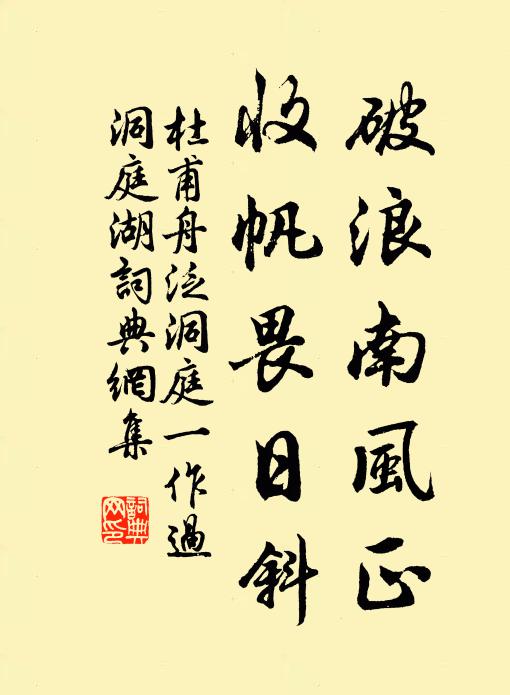 破浪南風正
收帆畏日斜
杜甫舟泛洞庭一作過
洞庭湖詞典網集
詞典
网印